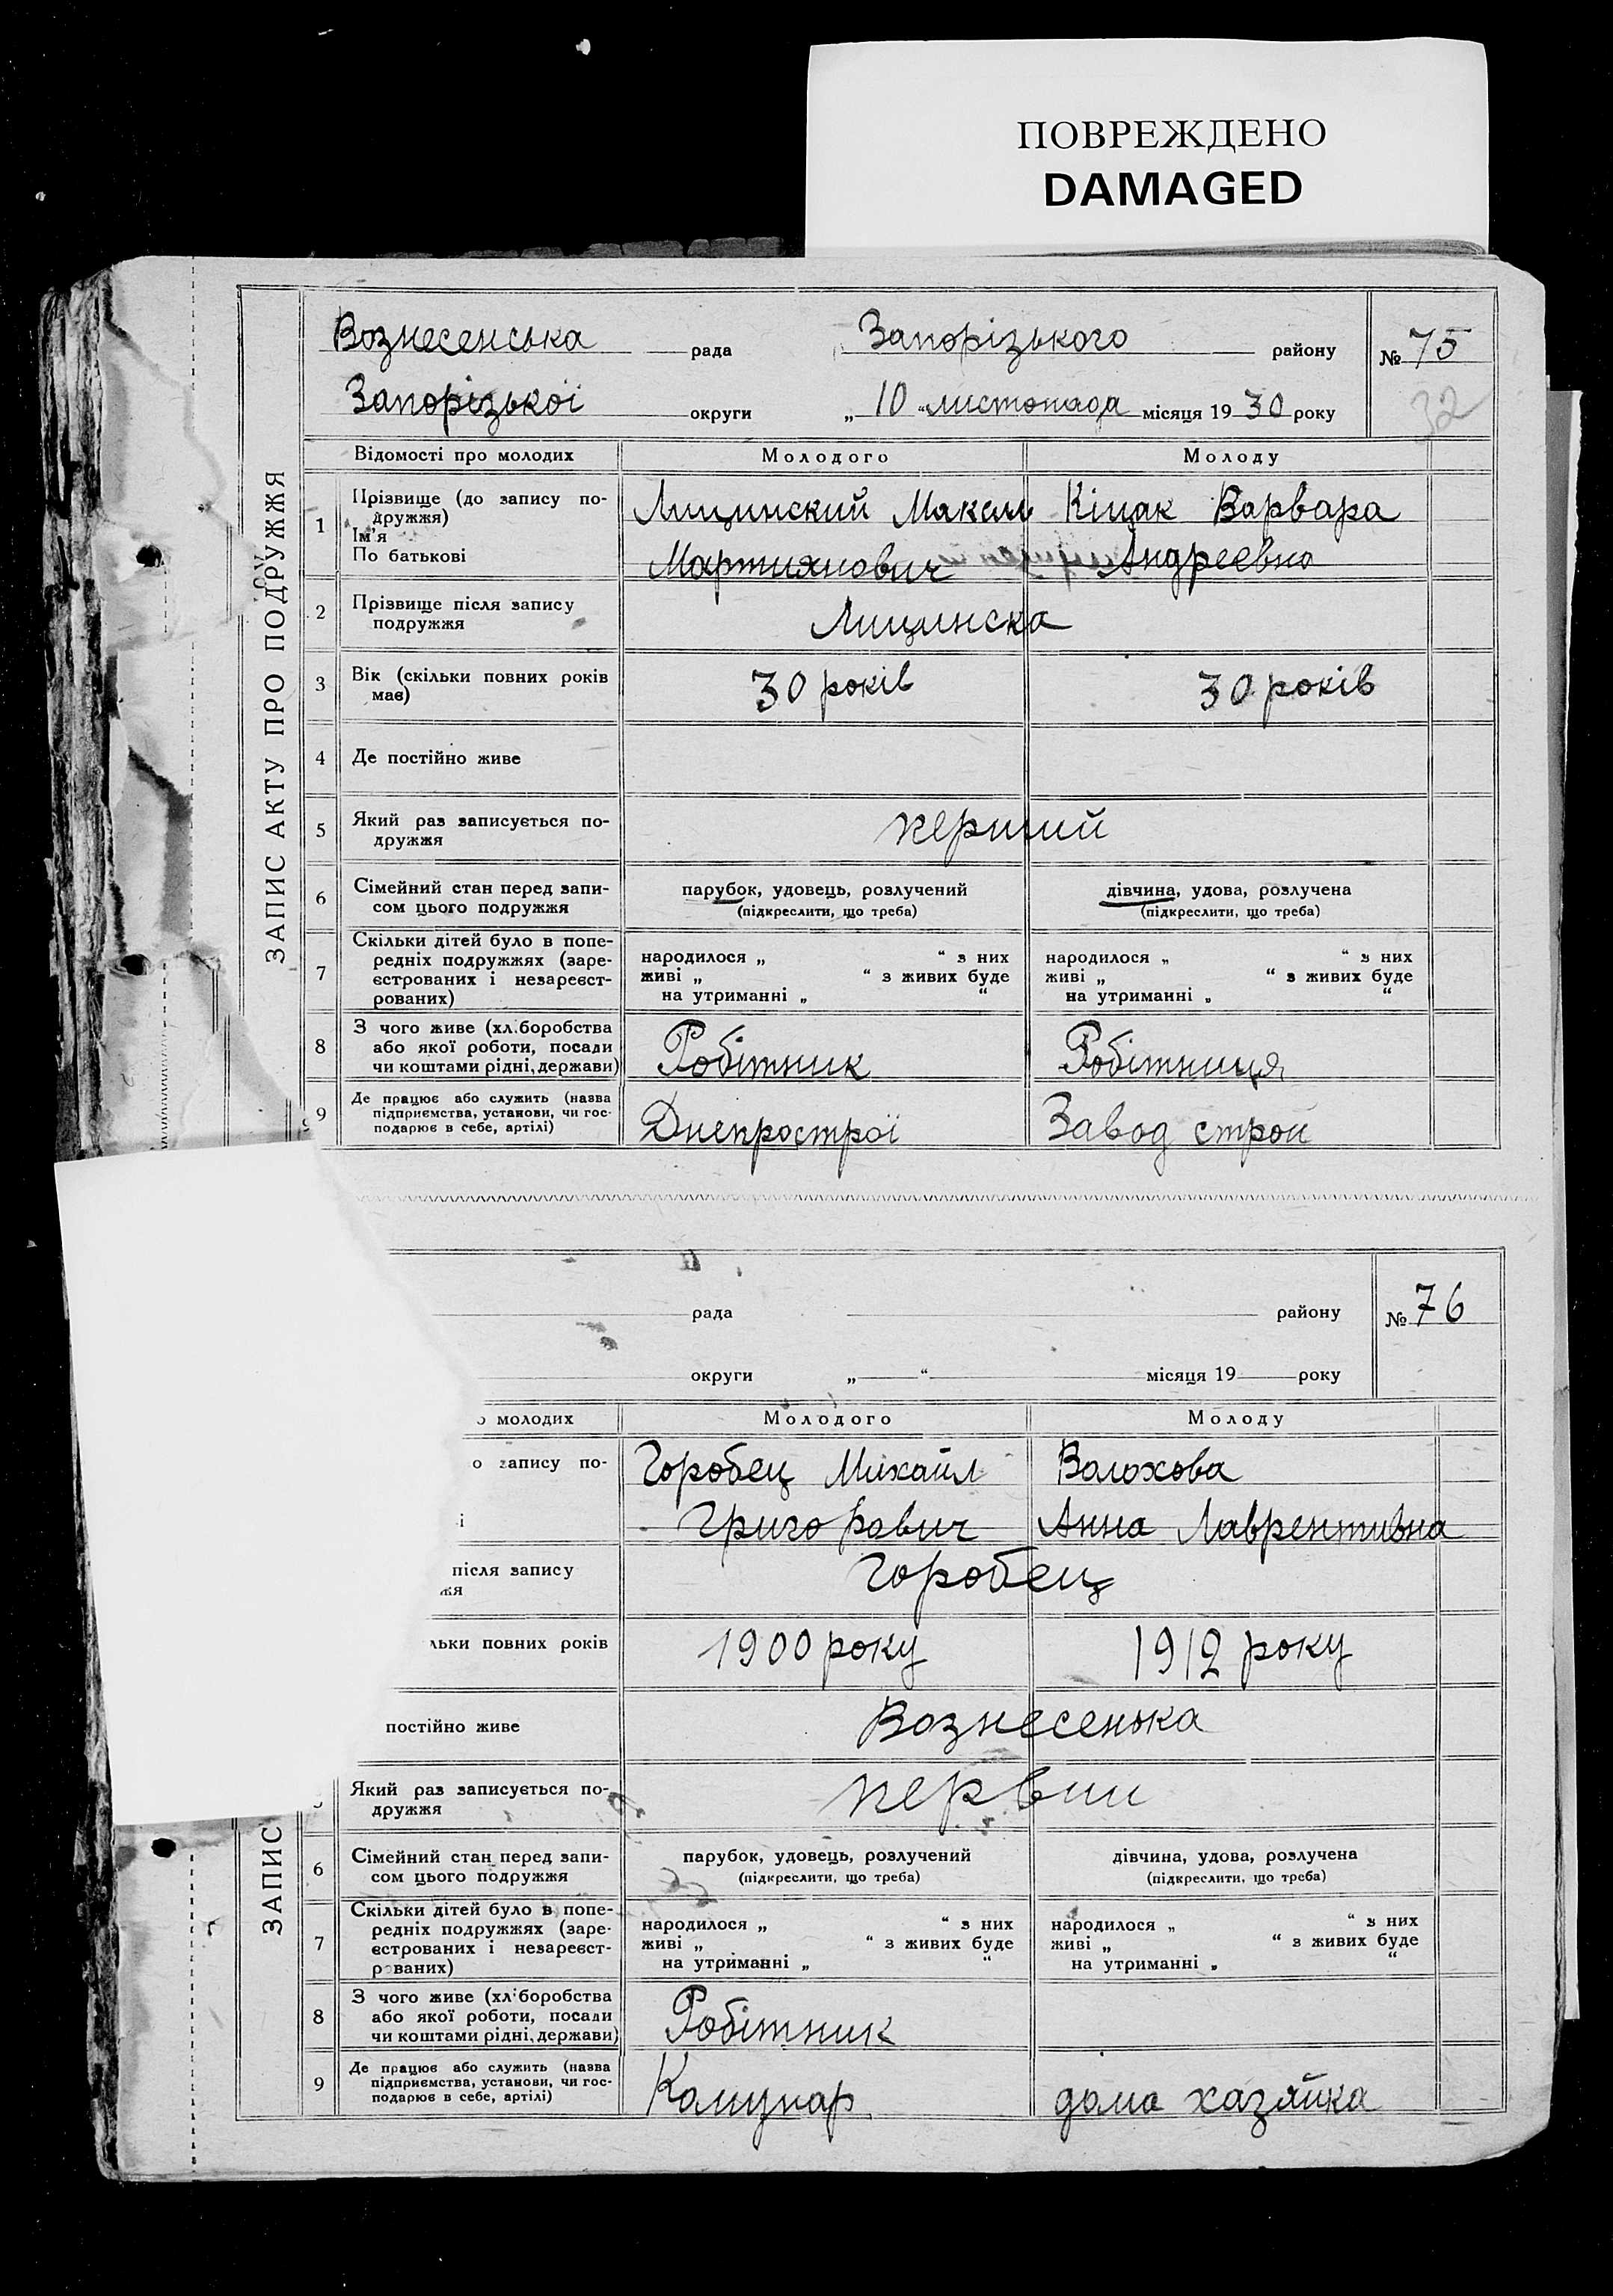 ПОВРЕЖДЕНО
DAMAGED
ЗАПИС АКТУ ПРО ПОДРУЖЖЯ
Вознесенська рада Запорізького району № 75
Запорізької округи „ 10 “ листопада місяця 19 30 року
32
Відомості про молодих Молодого Молоду
1 Прізвище (до запису по-
дружжя)
Ім'я
По батькові
Лищинский Максим Кіцак Варвара
Мартиянович Андреевна
2 Прізвище після запису
подружжя
Лищинска
3 Вік (скільки повних років
має)
30 років 30 років
4 Де постійно живе
5 Який раз записується по-
дружжя
перший
6 Сімейний стан перед запи-
сом цього подружжя
парубок, удовець, розлучений дівчина, удова, розлучена
(підкреслити, що треба) (підкреслити, що треба)
7 Скільки дітей було в попе-
редніх подружжях (заре-
єстрованих і незареєст-
рованих)
народилося „ “ з них народилося „ “ з них
живі „ “ з живих буде живі „ “ з живих буде
на утриманні „ “ на утриманні „ “
8 З чого живе (хл.боробства
або якої роботи, посади
чи коштами рідні, держави)
Робітник Робітниця
9 Де працює або служить (назва
підприємства, установи, чи гос-
подарює в себе, артілі)
Днепрострої Завод строй
рада району № 76
округи „ “ місяця 19 року
о молодих Молодого Молоду
о запису по-
і
Горобец Михайл Волохова
Григорович Анна Лаврентивна
після запису
жя
Горобец
льки повних років
1900 року 1912 року
постійно живе
Вознесенька
Який раз записується по-
дружжя
первии
ЗАПИС
6 Сімейний стан перед запи-
сом цього подружжя
парубок, удовець, розлучений дівчина, удова, розлучена
(підкреслити, що треба) (підкреслити, що треба)
7 Скільки дітей було в попе-
редніх подружжях (заре-
єстрованих і незареєст-
рованих)
народилося „ “ з них народилося „ “ з них
живі „ “ з живих буде живі „ “ з живих буде
на утриманні „ “ на утриманні „ “
8 З чого живе (хл.боробства
або якої роботи, посади
чи коштами рідні, держави)
Робітник
9 Де працює або служить (назва
підприємства, установи, чи гос-
подарює в себе, артілі)
Комунар дома хазяйка